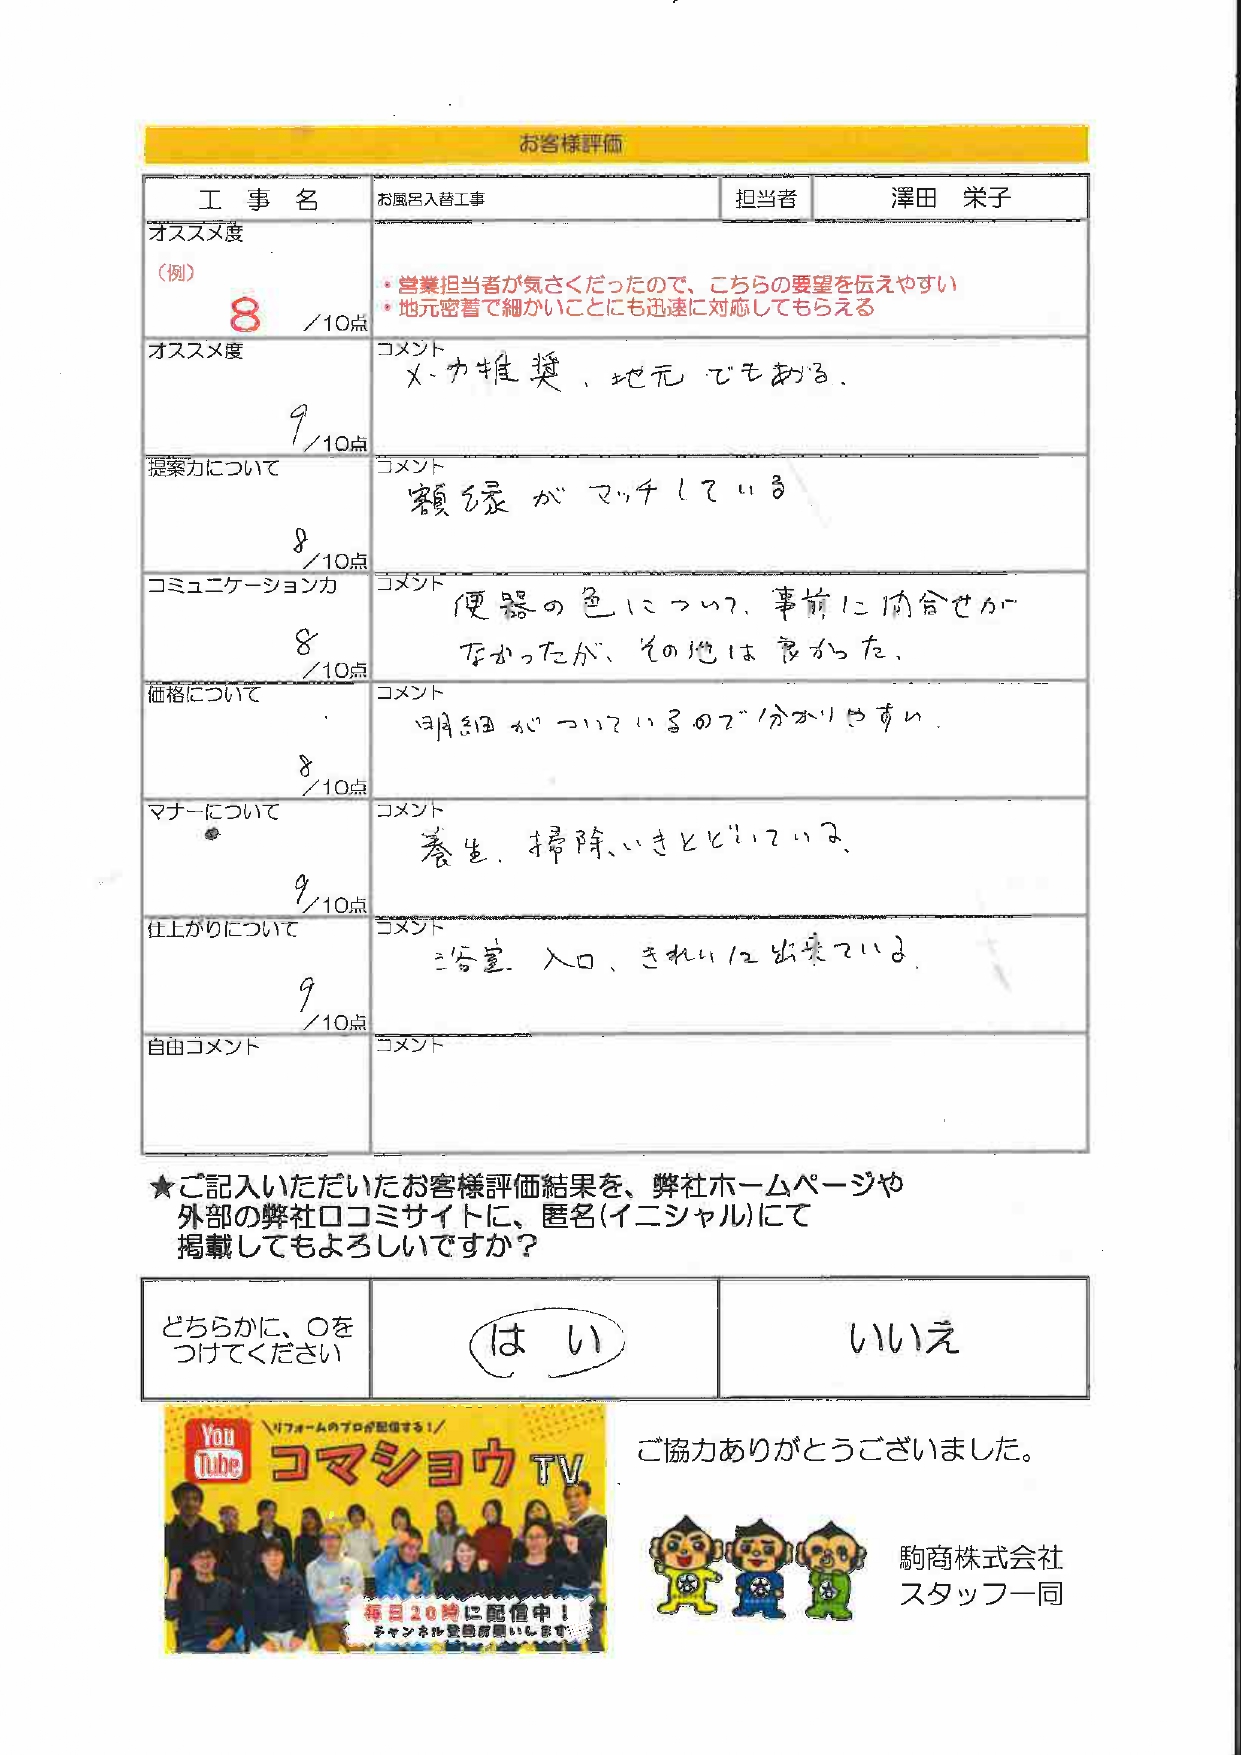 お客様評価
工事名 お風呂入替工事 担当者 澤田 栄子
オススメ度
(例)
8 /10点
・営業担当者が気さくだったので、こちらの要望を伝えやすい
・地元密着で細かいことにも迅速に対応してもらえる
オススメ度
9 /10点
コメント
メーカ推奨、地元でもある.
提案力について
8 /10点
コメント
額縁がマッチしている
コミュニケーション力
8 /10点
コメント
便器の色について、事前に問合せが
なかったが、その他は良かった.
価格について
8 /10点
コメント
明細がついているので分かりやすい.
マナーについて
9 /10点
コメント
養生、掃除、いきとどいている、
仕上がりについて
9 /10点
コメント
浴室 入口、きれいに出来ている.
自由コメント
コメント
★ご記入いただいたお客様評価結果を、弊社ホームページや
外部の弊社口コミサイトに、匿名(イニシャル)にて
掲載してもよろしいですか?
どちらかに、〇を
つけてください
はい
いいえ
You Tube
\リフォームのプロが配信する!/
コマショウTV
毎日20時に配信中!
チャンネル登録お願いします
ご協力ありがとうございました。
駒商株式会社
スタッフ一同